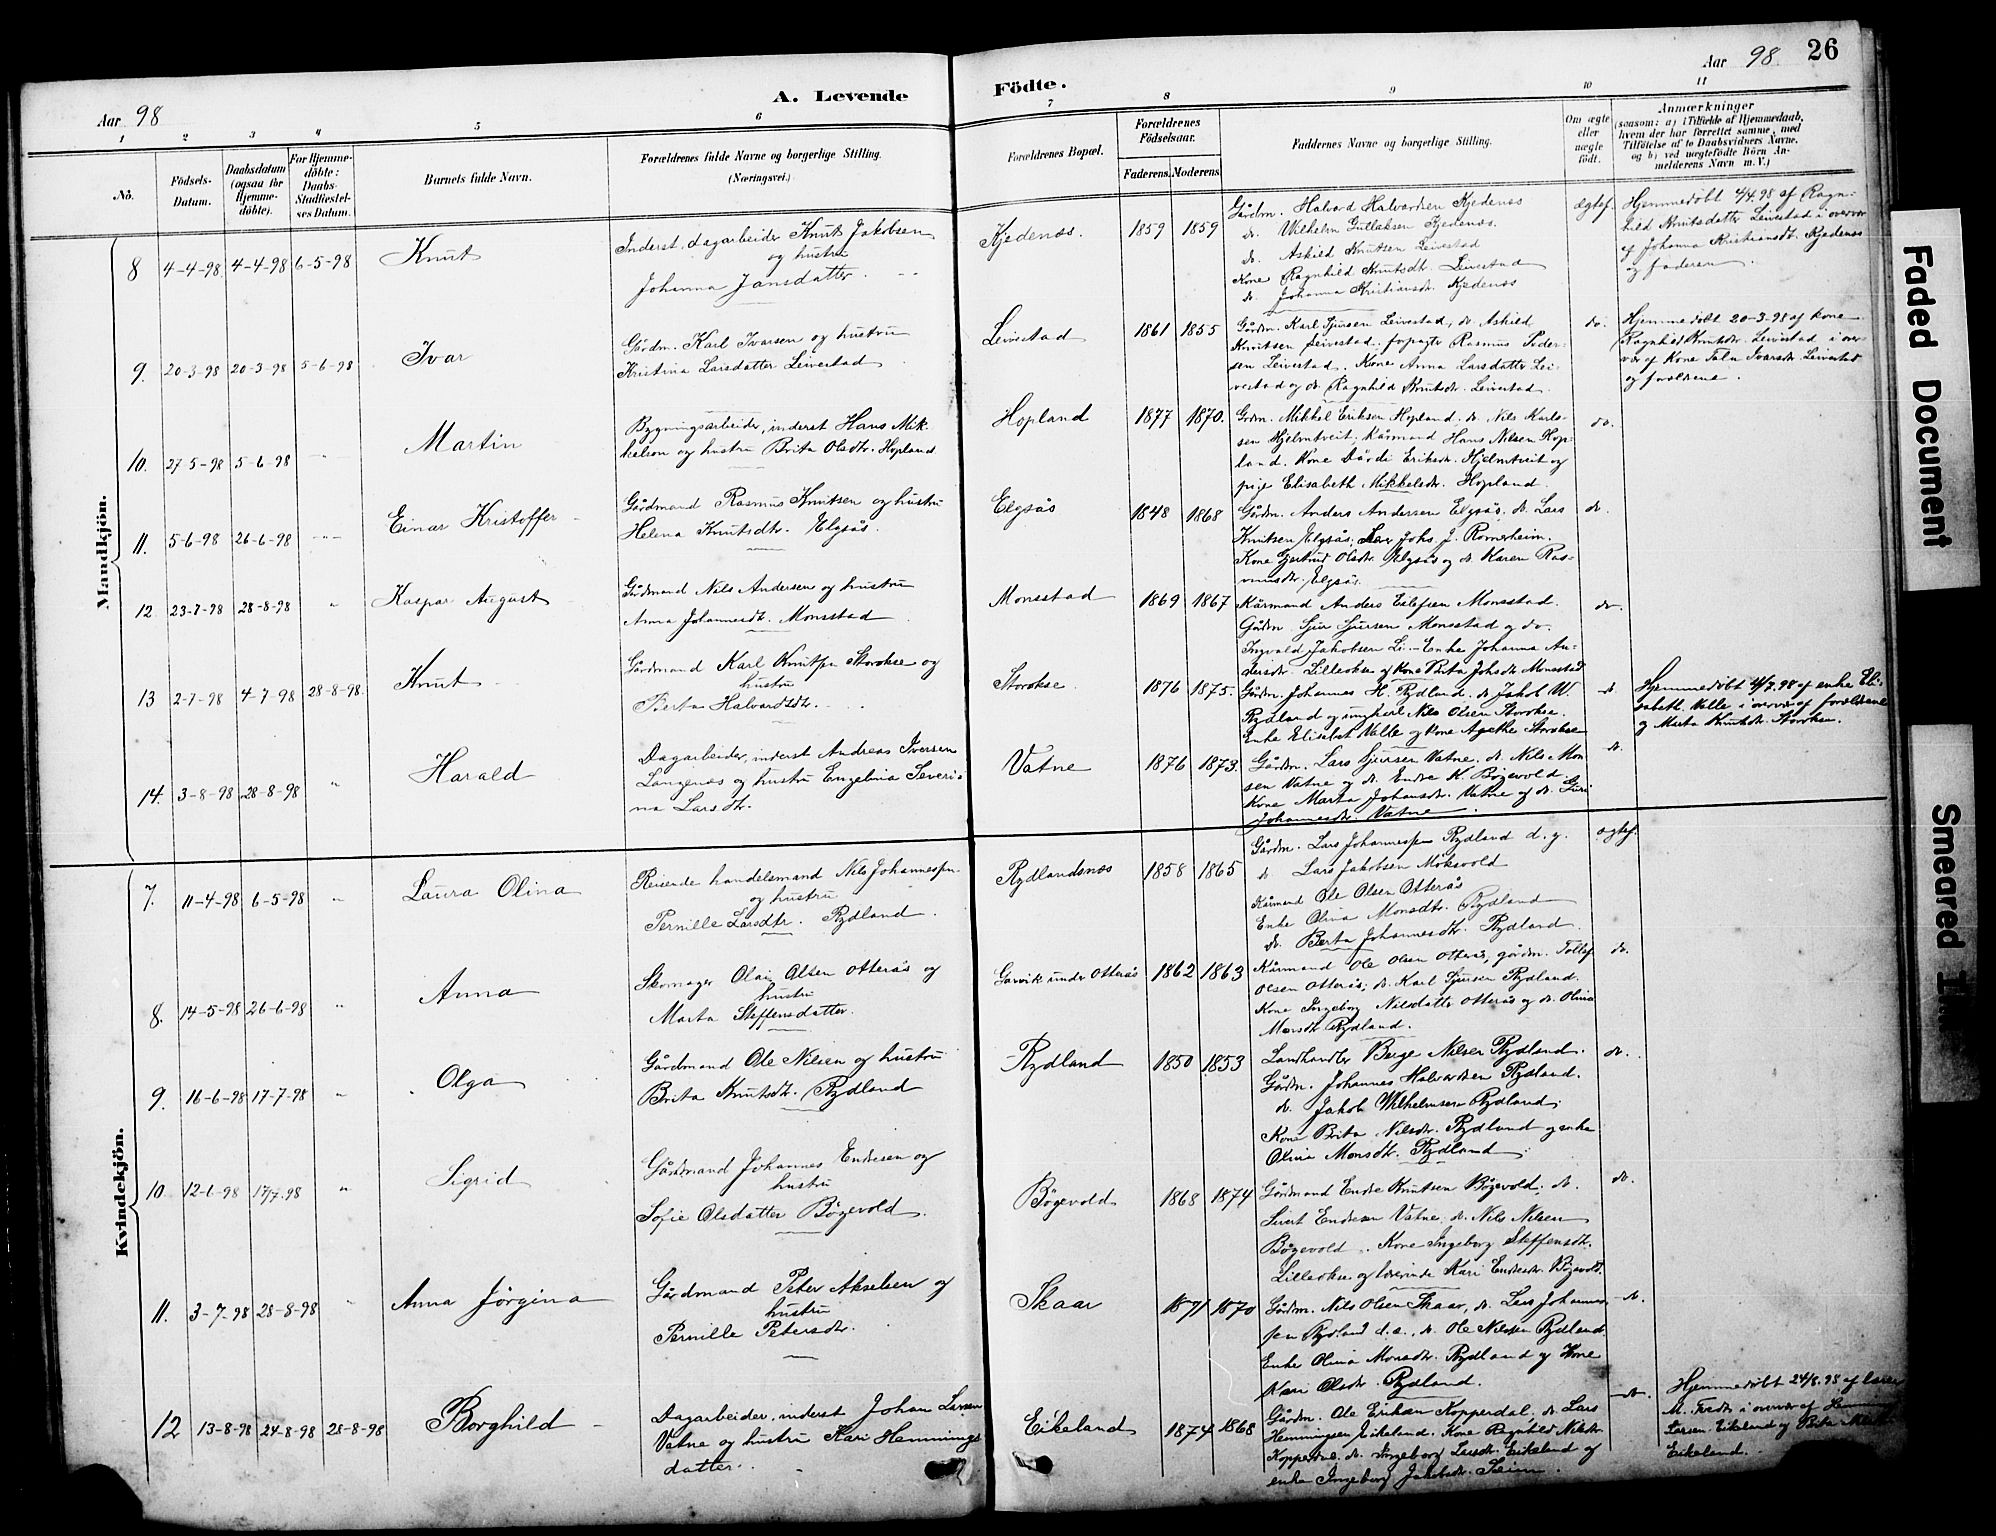 Aar 98
A. Levende
Födte.
Aar 98
26
1 2 3 4 5 6 7 8 9 10 11
No.
Födsels-Datum.
Daabsdatum (ogsaa for Hjemme-döbte).
For Hjemme-döbte: Daabs-Stadfæstel-ses Datum.
Barnets fulde Navn.
Forældrenes fulde Navne og borgerlige Stilling. (Næringsvei.)
Forældrenes Bopæl.
Forældrenes Födselsaar.
Faderens. Moderens.
Faddernes Navne og borgerlige Stilling.
Om ægte eller uægte födt.
Anmærkninger
(saasom: a) i Tilfælde af Hjemmedaab, hvem der har forrettet samme, med Tilföielse af to Daabsvidners Navne, og b) ved uægtefödte Börn An-melderens Navn m. V.)
Mandkjön.
8 4-4-98 4-4-98 6-5-98 Knut
Inderst, dagarbeider Knut Jakobsen
og hustru
Johanna Jansdatter
Kjedenæs. 1859 1859
Gårdm. Halvard Halvardsen Kjedenæs
do. Wilhelm Gullaksen Kjedenæs.
do. Askild Knutsen Leivestad
Kone Ragnhild Knutsdtr. Leivestad
do. Johanna Kristiansdtr. Kjedenæs
Ægtef.
Hjemmedøbt 4/4.98 af Ragn-
hild Knutsdatter Leivestad i overvær
af Johanna Kristiansdt. Kjedenæs
og faderen.
9. 20-3-98 20-3-98 5-6-98 Ivar
Gårdm. Karl Ivarsen og hustru
Kristina Larsdatter Leivestad
Leivestad 1861 1855
Gårdm. Karl Sjursen Leivestad, do. Askild
Knutsen Leivestad. forpagter Rasmus Peder-
sen Leivestad. Kone Anna Larsdatter Lei-
vestad og do. Ragnhild Knutsdtr. Leivestad.
do.
Hjemmedøbt 20-3-98 af kone
Ragnhild Knutsdtr. Leivestad i over-
vær af Kone Ivarsdtr. Leivestad
og forældrene.
10. 27-5-98 5-6-98 Martin
Bygningsarbeider, inderst Hans Mik-
kelsen og hustru Brita Olsdtr. Hopland
Hopland 1877 1870.
Grdm. Mikkel Eriksen Hopland, do. Nils Karls-
sen Hjelmtveit, Kårmand Hans Nilsen Hop-
land. Kone Dårdi Eriksdtr. Hjelmtveit og
pige Elisabeth Mikkelsdtr. Hopland.
do.
11. 5-6-98 26-6-98 Einar Kristoffer
Gårdmand Rasmus Knutsen og hustru
Helena Knutsdtr. Elgsås.
Elgsås 1848 1868
Gårdm. Anders Andersen Elgsås, do. Lars
Knutsen Elgsås, Lærer Johs J. Romerheim.
Kone Gjertrud Olsdtr. Elgsås og do. Karen Ras-
musdtr. Elgsås.
do.
12. 23-7-98 28-8-98 " Kaspar August
Gårdmand Nils Andersen og hustru
Anna Johannesdtr. Monsstad
Monsstad 1869 1867
Kårmand Anders Eilefsen Monsstad.
Gårdm. Sjur Sjursen Monsstad og do.
Ingvald Jakobsen Li - Enke Johanna An-
dersdtr. Lilleoksa og Kone Brita Johsdtr. Monsstad
do.
13 2-7-98 4-7-98 28-8-98. Knut
Gårdmand Karl Knutsen Storoksa og
hustru
Berta Halvardsdtr.
Storoksa 1876 1875.
Gårdm. Johannes H. Rydland. do. Jakob W.
Rydland og ungkarl Nils Olsen Storoksa.
Enke Elisabet Valle og Kone Agathe Storoksa
do
Hjemmedøbt 4/7.98 af enke Eli-
sabeth Valle i overvær af forældrene
og Marta Knutsdtr. Storoksa.
14. 3-8-98 28-8-98 " Harald
Dagarbeider, inderst Andreas Iversen
Langenæs og hustru Engelina Severi-
na Larsdtr.
Vatne 1876 1873.
Gårdm. Lars Sjursen Vatne, do. Nils Mon-
sen Vatne og do. Endre K. Bøgevold
Kone Marta Johansdtr. Vatne og do. Guri
Johannesdtr. Vatne.
do.
Kvindekjön.
7. 11-4-98 6-5-98 " Laura Olina
Reisende handelsmand Nils Johannesen
og hustru
Pernille Larsdtr. Rydland.
Rydlandsnæs 1858 1865
Gårdm. Lars Johannesen Rydland d.y.
do. Lars Jakobsen Möksvold
Kårmand Ole Olsen Otterås
Enke Olina Monsdtr. Rydland
do. Berta Johannesdtr. Rydland.
ægtef.
8. 14-5-98 26-6-98 " Anna
Skomager Olai Olsen Otterås og
hustru
Marta Steffensdatter.
Garvik under Otterås 1862 1863
Kårmand Ole Olsen Otterås, gårdm. Tollef
Olsen Otterås, do. Karl Sjursen Rydland.
Kone Ingeborg Nilsdatter Otterås og do. Olina
Monsdtr. Rydland.
do.
9. 16-6-98 17-7-98 " Olga
Gårdmand Ole Nilsen og hustru
Brita Knutsdtr. Rydland
Rydland 1850 1853
Landhandler Berge Nilsen Rydland.
Gårdm. Johannes Halvardsen Rydland.
do. Jakob Wilhelmsen Rydland.
Kone Brita Nilsdtr. Rydland og enke
Olina Monsdtr. Rydland.
do.
10. 12-6-98 17/7.98 " Sigrid
Gårdmand Johannes Endresen og
hustru
Sofie Olsdatter Bögevold.
Bögevold 1868 1874
Gårdmand Endre Knutsen Bögevold, do.
Sivert Endresen Vatne, do. Nils Nilsen
Bögevold. Kone Ingeborg Steffensdtr.
Lilleoksa og lærerinde Kari Endresdtr. Bögevold.
do.
11. 3-7-98 28-8-98 " Anna Jörgina
Gårdmand Peter Akselsen og
hustru
Pernille Petersdtr.
Skaar 1871 1870
Gårdm. Nils Olsen Skaar, do. Lars Johannes-
sen Rydland d.e., do. Ole Nilsen Rydland.
Enke Olina Monsdtr. Rydland og Kone
Kari Olsdtr. Rydland.
do.
12 13-8-98 24-8-98 28-8-98 Borghild
Dagarbeider, inderst Johan Larsen
Vatne og hustru Kari Hemmings-
datter.
Eikeland 1874 1868
Gårdm. Ole Eriksen Kopperdal, do. Lars
Hemmingsen Eikeland. Kone Ragnhild Nilsdtr.
Kopperdal, do. Ingeborg Larsdtr. Eikeland og
enke Ingeborg Jakobsdtr. Seim.
do.
Hjemmedøbt 24/8.98 af lærer
M. i overvær af Hemming
Larsen Eikeland og Brita
Eikeland.
Faded Document
Smeared